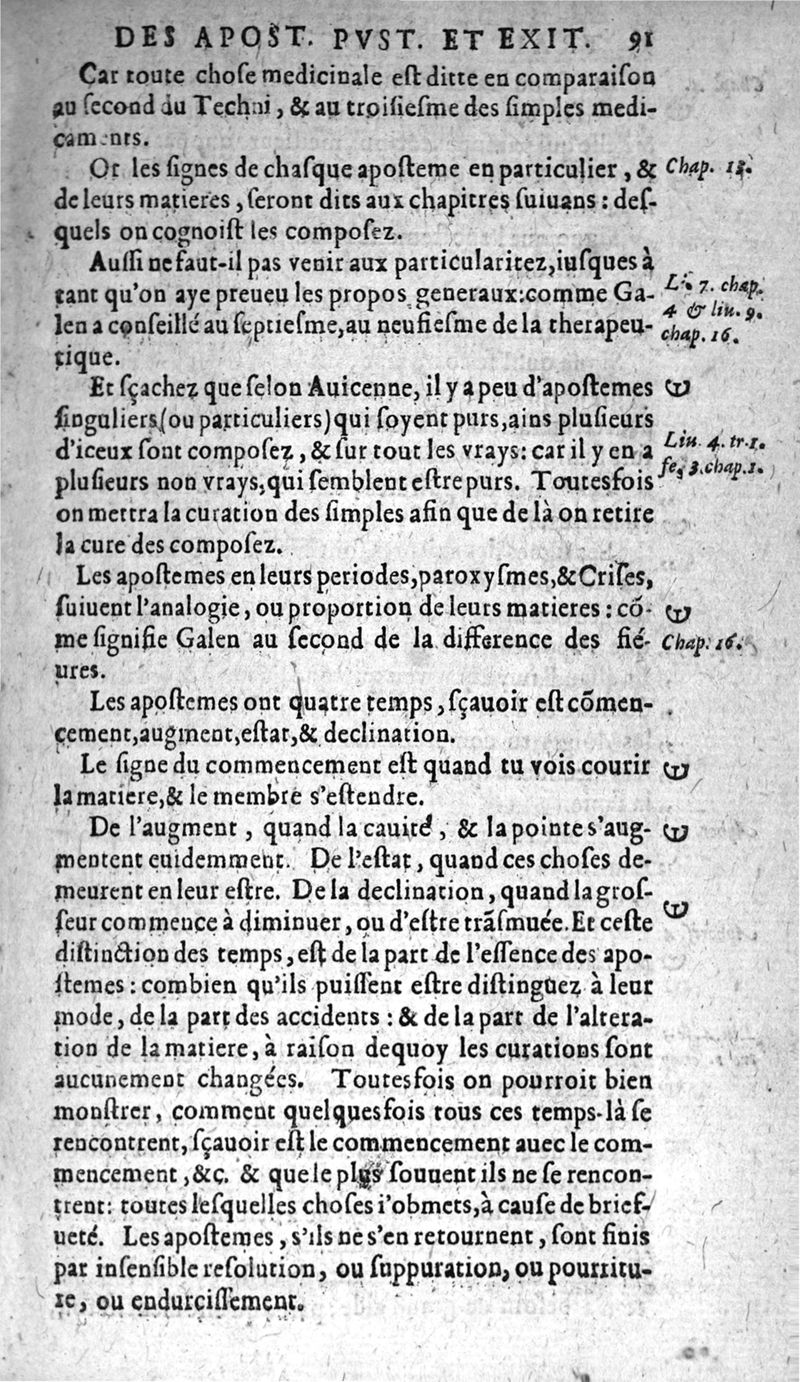 DES APOST. PVST. ET EXIT. 91
Car toute choſe medicinale eſt ditte en comparaiſon
au ſecond du Techni, & au troiſieſme des ſimples medi-
caments.
Or les ſignes de chaſque apoſteme en particulier, &
Chap. 13.
de leurs matieres, ſeront dits aux chapitres ſuiuans : deſ-
quels on cognoiſt les compoſez.
Auſſi ne faut-il pas venir aux particularitez, iuſques à
tant qu'on aye preueu les propos generaux: comme Ga-
Li. 7. chap.
4 & liu. 9.
len a conſeillé au ſeptieſme, au neufieſme de la therapeu-
chap. 16.
tique.
Et ſçachez que ſelon Auicenne, il y a peu d'apoſtemes
ſinguliers (ou particuliers) qui ſoyent purs, ains pluſieurs
d'iceux ſont compoſez, & ſur tout les vrays: car il y en a
Liu. 4. tr. 1.
pluſieurs non vrays, qui ſemblent eſtre purs. Toutesfois
fe. 3. chap. 1.
on mettra la curation des ſimples afin que de là on retire
la cure des compoſez.
Les apoſtemes en leurs periodes, paroxyſmes, & Criſes,
ſuiuent l'analogie, ou proportion de leurs matieres : cõ-
me ſignifie Galen au ſecond de la difference des fié-
Chap. 16.
ures.
Les apoſtemes ont quatre temps, ſçauoir eſt cõmen-
cement, augment, eſtat, & declination.
Le ſigne du commencement eſt quand tu vois courir
la matiere, & le membre s'eſtendre.
De l'augment, quand la cauité, & la pointe s'aug-
mentent euidemment. De l'eſtat, quand ces choſes de-
meurent en leur eſtre. De la declination, quand la groſ-
ſeur commence à diminuer, ou d'eſtre trãſmuée. Et ceſte
diſtinction des temps, eſt de la part de l'eſſence des apo-
ſtemes : combien qu'ils puiſſent eſtre diſtinguez à leur
mode, de la part des accidents : & de la part de l'altera-
tion de la matiere, à raiſon dequoy les curations ſont
aucunement changées. Toutesfois on pourroit bien
monſtrer, comment quelquesfois tous ces temps-là ſe
rencontrent, ſçauoir eſt le commencement auec le com-
mencement, &c. & que le plus ſouuent ils ne ſe rencon-
trent: toutes leſquelles choſes i'obmets, à cauſe de brief-
ueté. Les apoſtemes, s'ils ne s'en retournent, ſont finis
par inſenſible reſolution, ou ſuppuration, ou pourritu-
re, ou endurciſſement.